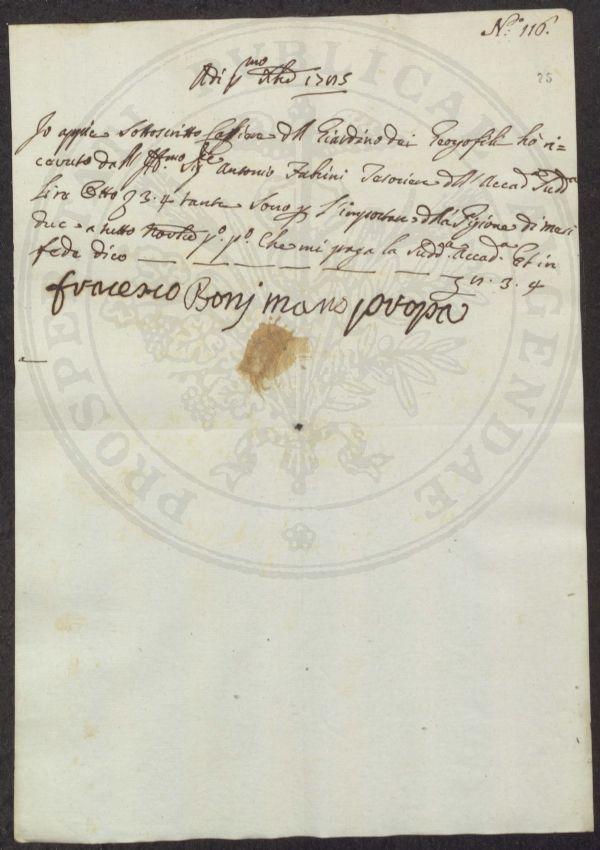 N.° 116.
25
Adi p.mo Xbre 1785
Io appiè Sottoscritto Custode dell Giardino dei Georgofili hò ri=
cevuto dall Illmo Sig.re Antonio Fabrini Tesoriere dell'Accad.a Sudd.a
Lire Otto 3. 4 tante Sono p l'importare della Pigione di mesi
due a tutto Novbre p.o p.o Che mi paga la Sudd.a Accad.a Et in
fede dico — — — — — — — 8. 3. 4
francesco Bonj mano propa
PROSPERITATI PUBLICAE AUGENDAE